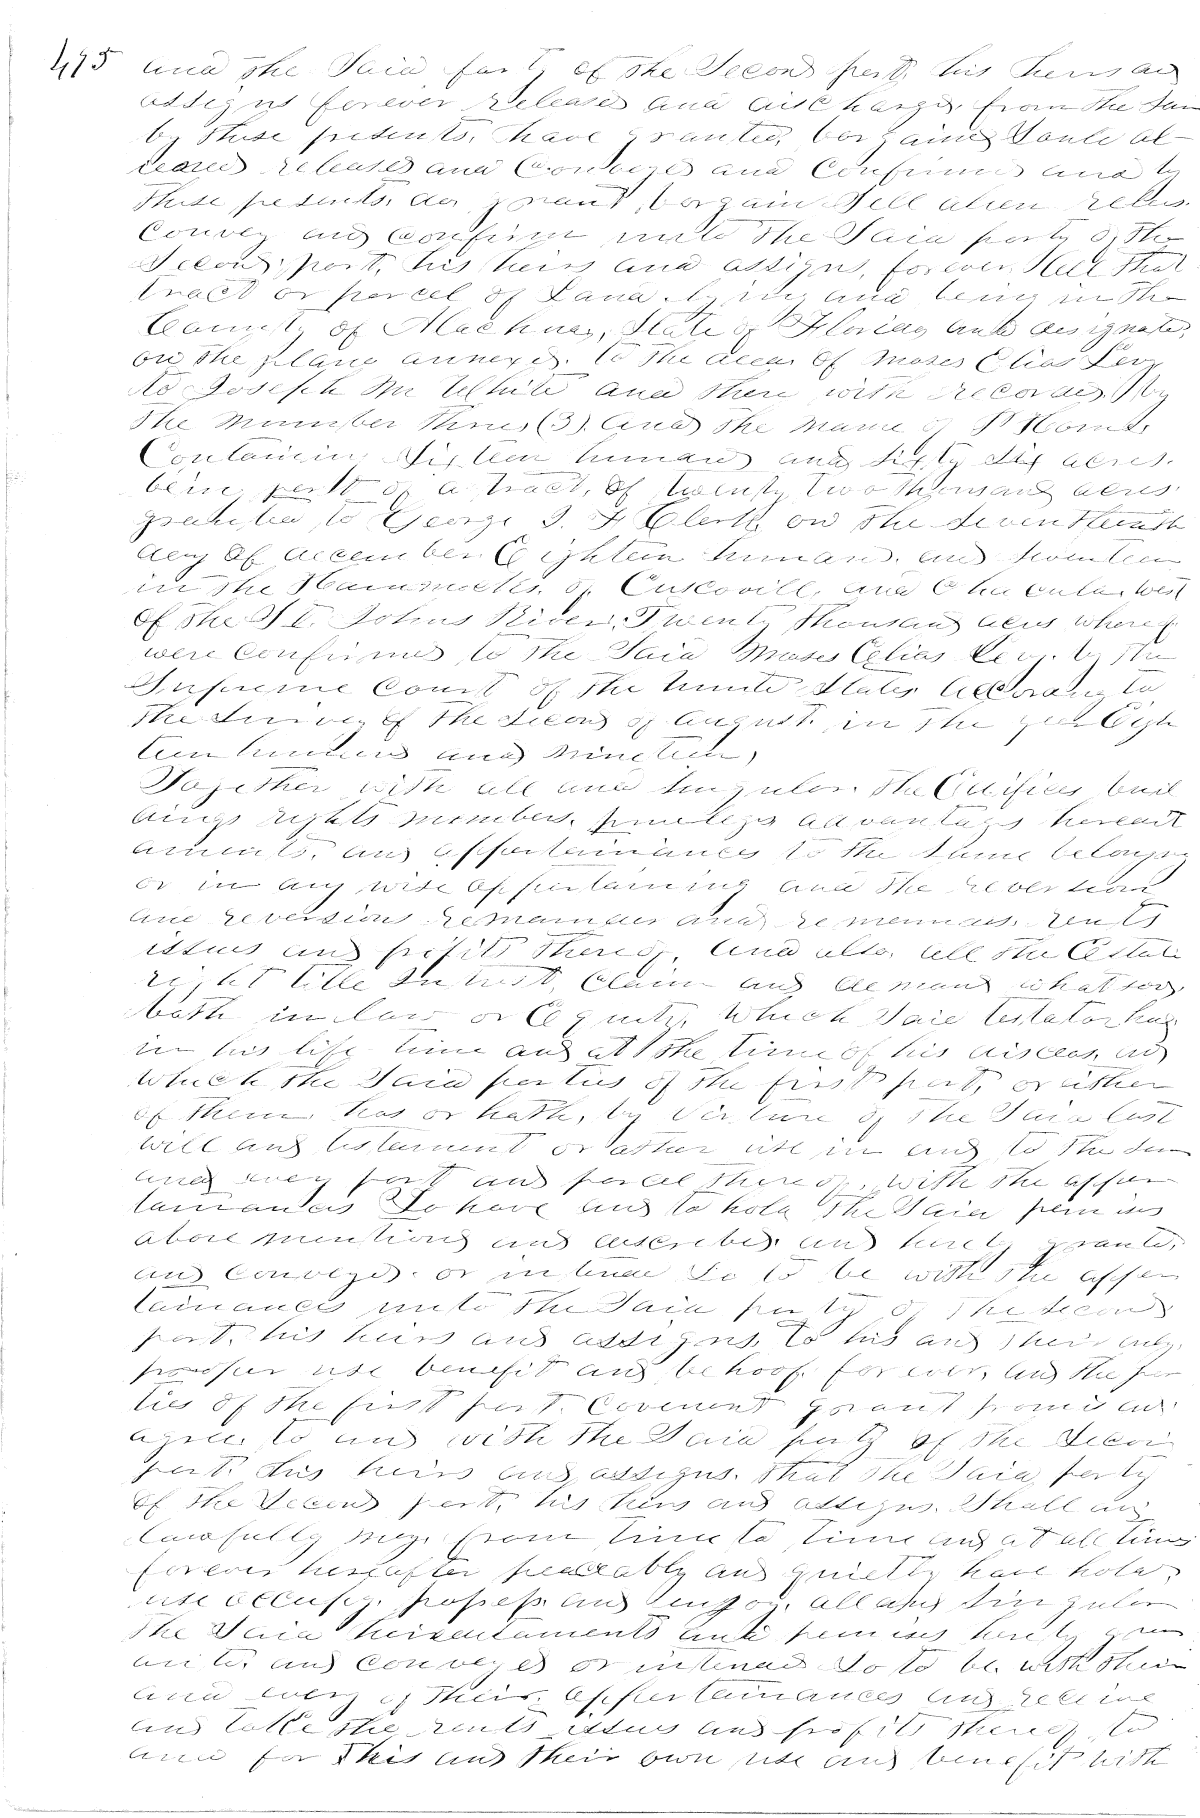 495 and the Said party of the Second part, his heirs and
assigns forever released and discharged, from the Same
by these presents, have granted, bargained Sould al-
iened released and Conveyed and Confirmed and by
These presents, do, grant, bargain Sell alien releas
Convey and Confirm unto The Said party of the
Second, part, his heirs and assigns, forever, All That
tract or parcel of Land lying and being in the
County of Alachua, State of Florida and designated,
on the plane annexed, to the deed of Moses Elias Levy
to Joseph M White and there with recorded, by
The Number Three (3) and The Name of
Containing Sixteen hundred and Sixty Six acres,
being part of a tract, of twenty two thousand acres
granted to George J. F Clerk, on The Seventeenth
day of december Eighteen hundred, and Seventeen
in the Hammocks, of Cuscovill, and Chucula, west
of the St. Johns River, Twenty thousand acres whereof
were Confirmed to The Said Moses Elias Levy, by the
Supreme Court of the United States according to
the Survey of The Second of august, in The year Eigh
teen hundred and Nineteen,
Together with all and Singular, The Edifices, buil
dings rights members, privileges advantages heredit
aments, and appertainances to the Same belonging
or in any wise appertaining and The reversion
and reversions remainder and remainders, rents
issues and profits thereof, And also, all the Estate
right title Intrest, Claim and demand whatsoev,
both in law or Equity, Which Said testator had
in his life time and at the time of his disceas, and
which the Said parties of the first part, or either
of them, has or hath, by Virture of The Said last
will and testament or other wise in and to the Sam
and every part and parcel thereof, with the apper
tainances To have and to hold The Said premises
above mentiond and described, and hereby granted,
and Conveyed, or intended So to be with the apper
tainances unto The Said party of The Second
part, his heirs and assigns, to his and their only,
propper use benefit and behoof, for ever, And the par
ties of the first part, Covenent grant promis and
agree, to and with The Said party of the Secon
part, his heirs and assigns, that The Said party
of the Second part, his heirs and assigns, Shall and
lawfully may, from time to time and at all times
forever hereafter peaceably and quietly have hold,
use occupy, possess and enjoy, all and Singular
The Said heirditaments and premises hereby gran
and Conveyed or intended So to be, with their
and every of their, appertainances and receive
and take the rents issues and profits thereof, to
and for This and their own use and benefit with